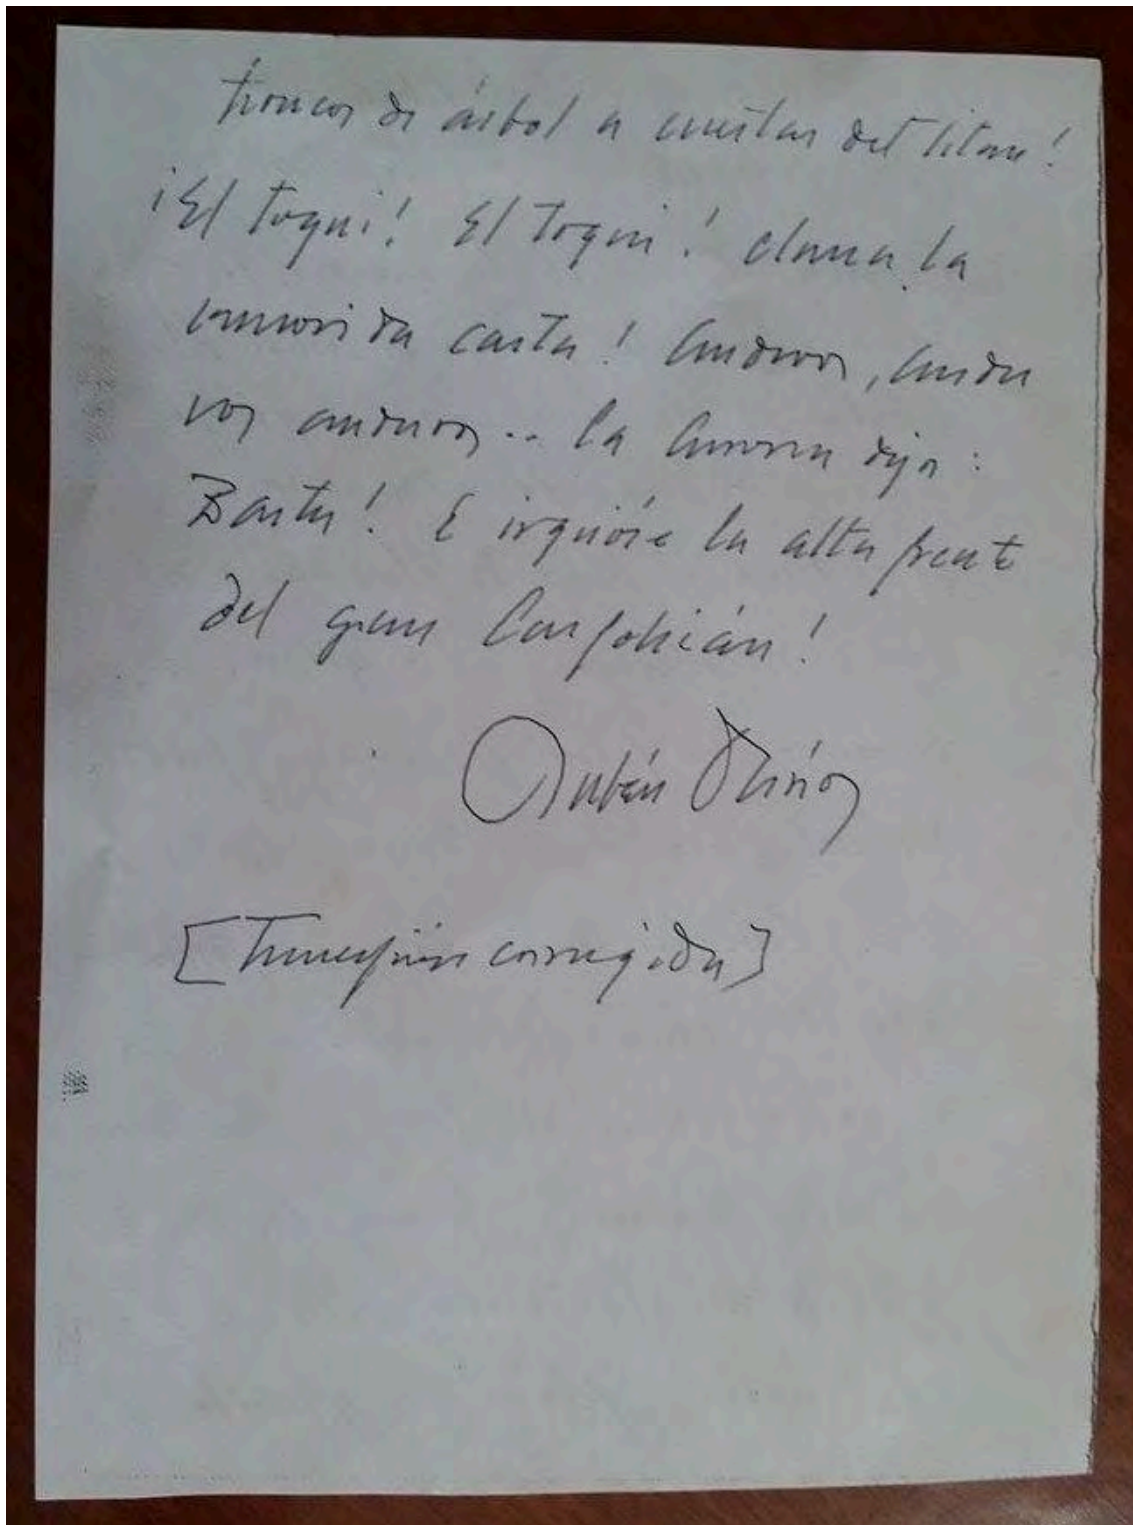 tronco de árbol a cuestas del titan!
¡El toqui! El Toqui! clama la
conmovida casta! Anduvo, andu
vo, anduvo.. la Aurora dijo:
Basta! E irguióse la alta frente
del gran Caupolicán!
Rubén Darío
[Transcripción corregida]